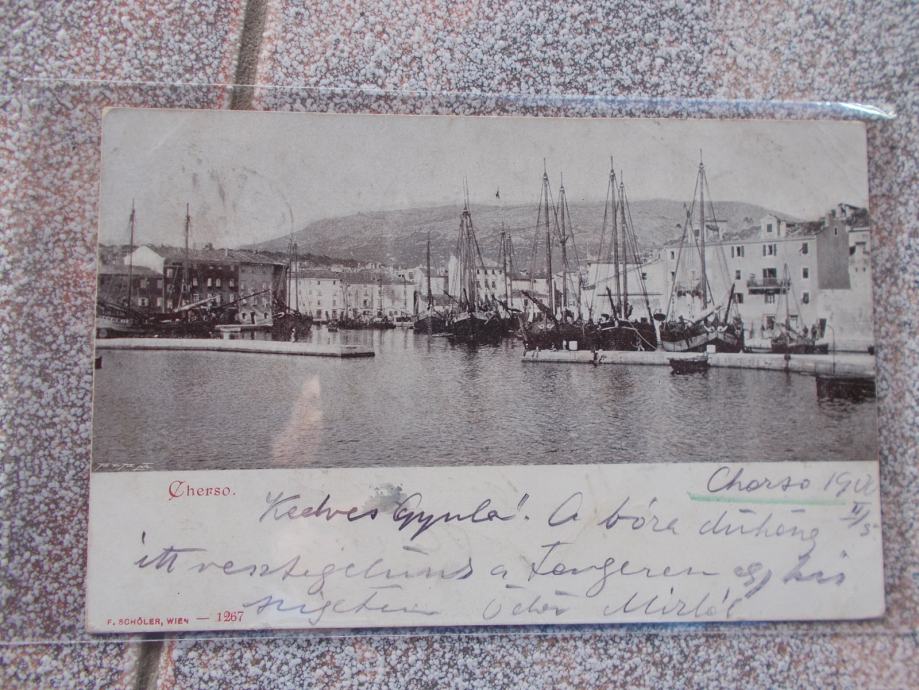 Cherso.
Cherso 190
II/5
Kedves Gyula! A bóra dühöng
itt vesztegelünk a Tengeren egy kis
szigeten
F. SCHÖLER, WIEN — 1267